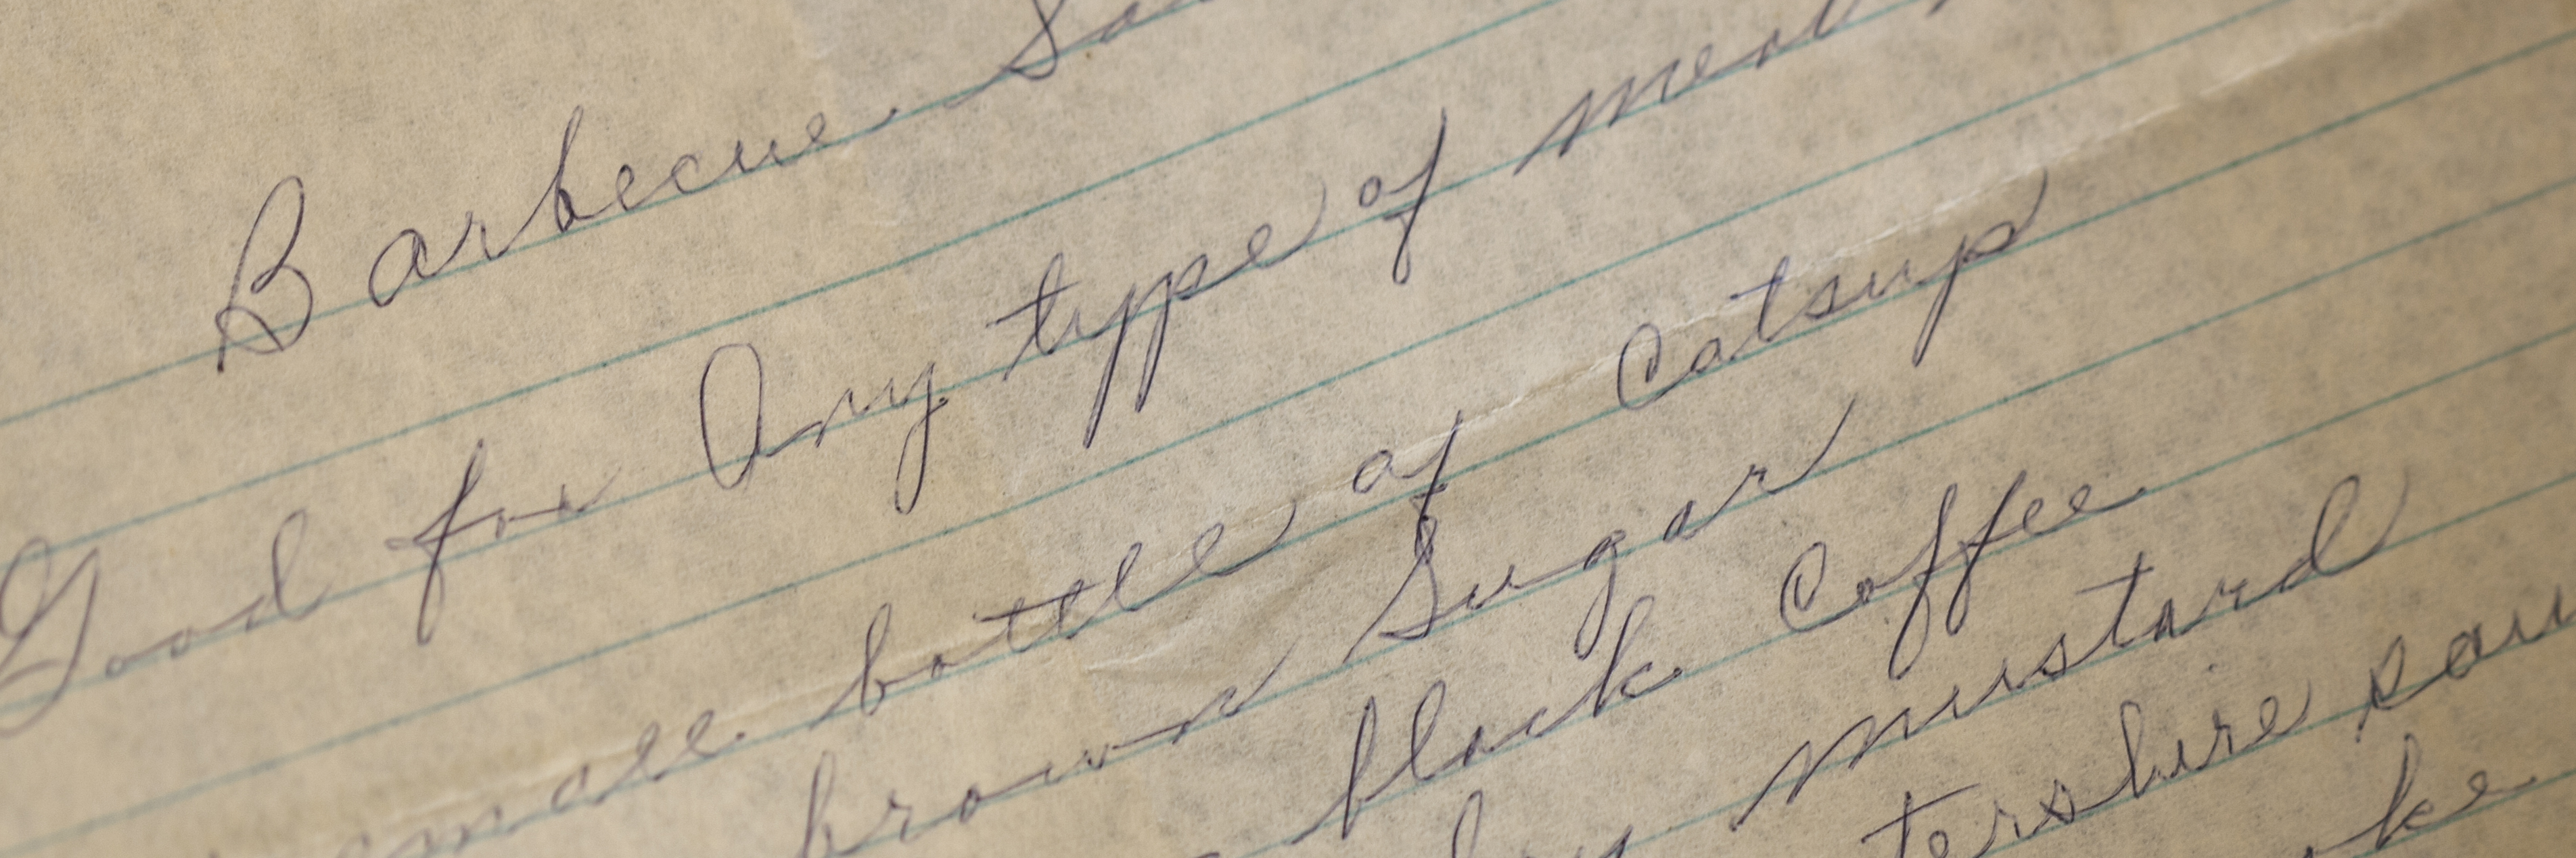 Barbecue
Good for Any type of meat
small bottle of Catsup
brown Sugar
black Coffee
mustard